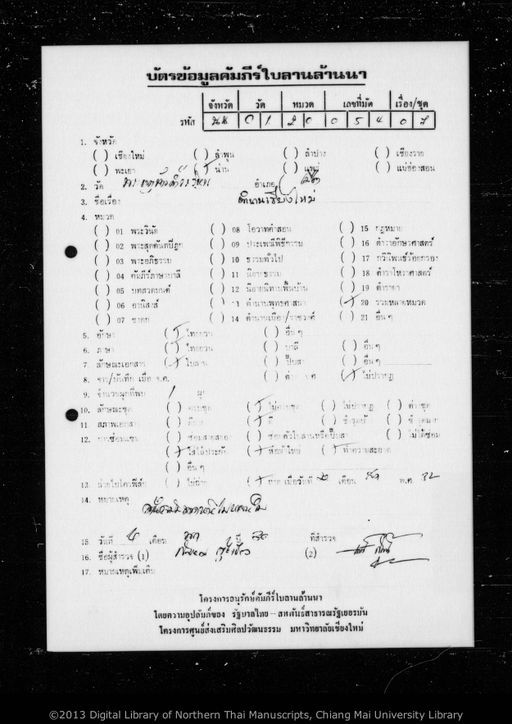 บัตรข้อมูลคัมภีร์ใบลานล้านนา
จังหวัด วัด หมวด เลขที่มัด เรื่อง/ชุด
รหัส นน 01 20 054 07
1. จังหวัด
( ) เชียงใหม่ ( ) ลำพูน ( ) ลำปาง ( ) เชียงราย
( ) พะเยา (/) น่าน ( ) แพร่ ( ) แม่ฮ่องสอน
2. วัด อำเภอ
3. ชื่อเรื่อง ตำนานเชียงใหม่
4. หมวด
( ) 01 พระวินัย ( ) 08 โอวาทคำสอน ( ) 15 กฎหมาย
( ) 02 พระสุตตันตปิฎก ( ) 09 ประเพณีพิธีกรรม ( ) 16 ตำราอักษรศาสตร์
( ) 03 พระอภิธรรม ( ) 10 ธรรมทั่วไป ( ) 17 กวีนิพนธ์ร้อยกรอง
( ) 04 คัมภีร์ภาษาบาลี ( ) 11 นิยายธรรม ( ) 18 ตำราโหราศาสตร์
( ) 05 บทสวดมนต์ ( ) 12 นิยายนิทานพื้นบ้าน ( ) 19 ตำรายา
( ) 06 อานิสงส์ ( ) 13 ตำนานพุทธศาสนา (/) 20 รวมหลายหมวด
( ) 07 ชาดก ( ) 14 ตำนานเมือง/ราชวงศ์ ( ) 21 อื่นๆ
5. อักษร (/) ไทยยวน ( ) อื่นๆ
6. ภาษา (/) ไทยยวน ( ) บาลี ( ) อื่นๆ
7. ลักษณะเอกสาร (/) ใบลาน ( ) ปั๊บสา ( ) อื่นๆ
8. จาร/บันทึก เมื่อ จ.ศ. ( ) (/) ไม่ปรากฏ
9. จำนวนผูกที่พบ 1 ผูก
10. ลักษณะชุด ( ) ครบชุด (/) ไม่ครบชุด ( ) ไม่ปรากฏ ( )
11. สภาพเอกสาร ( ) (/) ดี ( ) ชำรุด ( )
12. การซ่อมแซม ( ) ( ) ซ่อมตัวใบลานหรือปั๊บสา ( ) ไม่ได้ซ่อม
(/) ใส่ไม้ประกับ (/) ห่อผ้าใหม่ (/) ทำความสะอาด
( ) อื่นๆ
13. ถ่ายไมโครฟิล์ม ( ) ไม่ถ่าย (/) ถ่าย เมื่อวันที่ เดือน พ.ศ. 32
14. หมายเหตุ
15. วันที่ เดือน ปี 30 ที่สำรวจ
16. ชื่อผู้สำรวจ (1) (2)
17. หมายเหตุเพิ่มเติม
โครงการอนุรักษ์คัมภีร์ใบลานล้านนา
โดยความอุปถัมภ์ของ รัฐบาลไทย – สหพันธ์สาธารณรัฐเยอรมัน
โครงการศูนย์ส่งเสริมศิลปวัฒนธรรม มหาวิทยาลัยเชียงใหม่
©2013 Digital Library of Northern Thai Manuscripts, Chiang Mai University Library